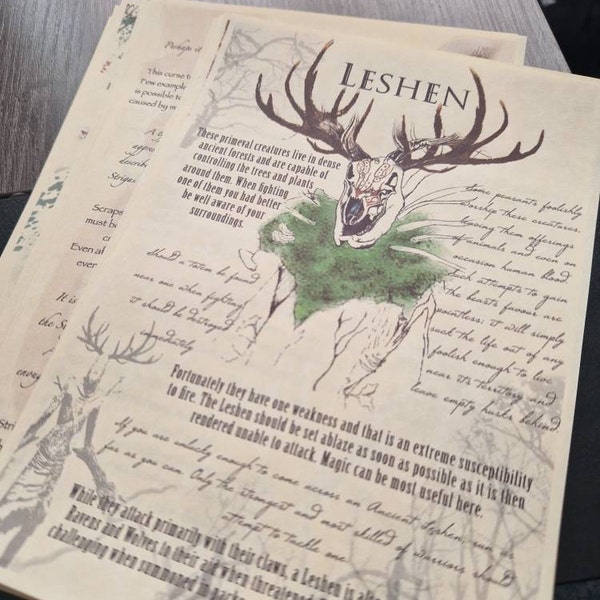 LESHEN
These primeval creatures live in dense
ancient forests and are capable of
controlling the trees and plants
around them. When fighting
one of them you had better
be well aware of your
surroundings.
Some peasants foolishly
worship these creatures.
Giving them offerings
of animals and even on
occasion human blood.
Such attempts to gain
the beasts favour are
pointless; it will simply
suck the life out of any
foolish enough to live
near its territory and
leave empty husks behind
Should a totem be found
near one when fighting
it should be destroyed
immediately
Fortunately they have one weakness and that is an extreme susceptibility
to fire. The Leshen should be set ablaze as soon as possible as it is then
rendered unable to attack. Magic can be most useful here.
If you are unlucky enough to come across an Ancient Leshen, run as
far as you can. Only the strongest and most skilled of warriors should
attempt to tackle one
While they attack primarily with their claws, a Leshen is
Ravens and Wolves to their aid when threatened.
challenging when summoned in
Perhaps it
This curse t
Few example
is possible to
caused by m
A
aggre
descri
Striga
Scraps
must b
Even al
ever
It is
the S
Stri